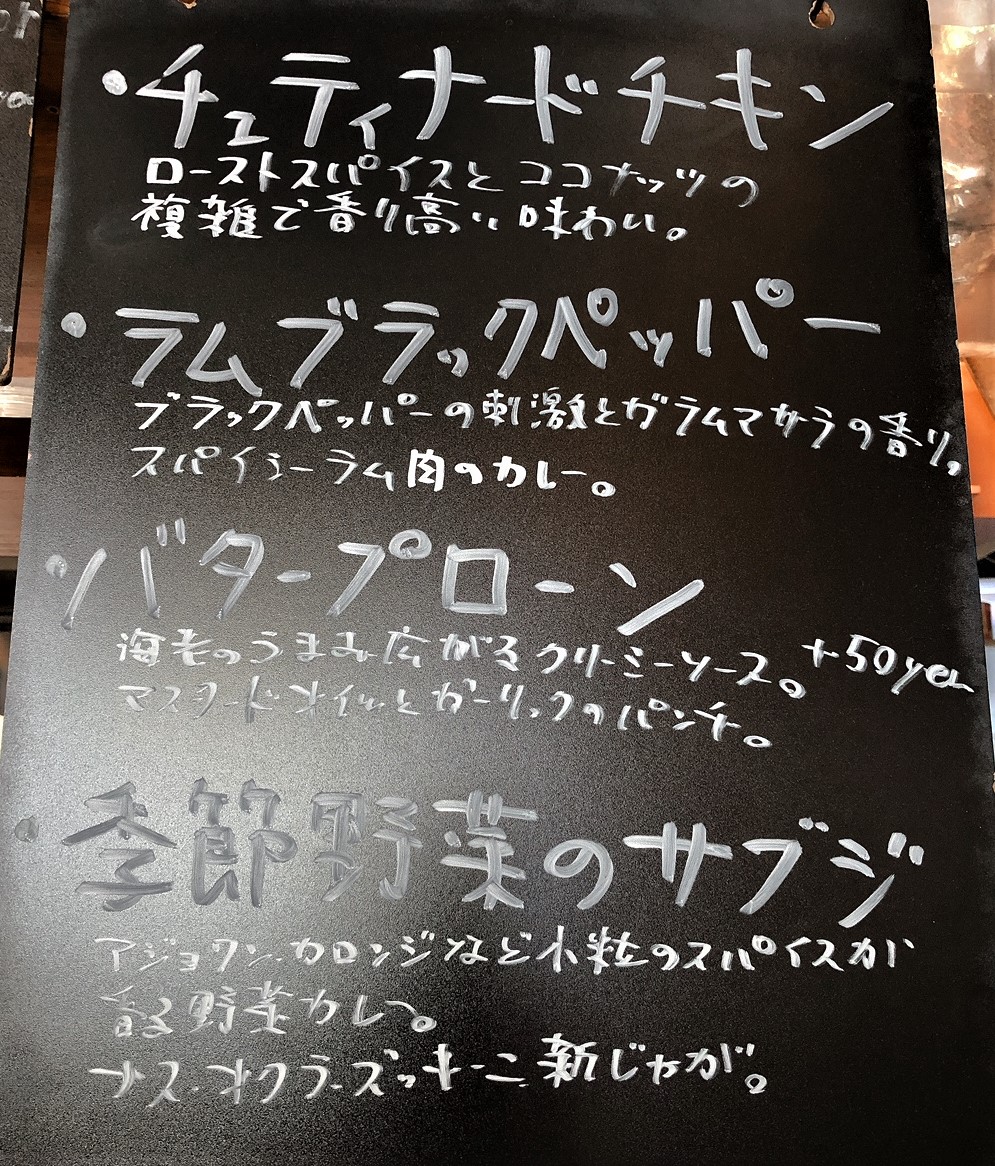 ・チェティナードチキン
ローストスパイスとココナッツの
複雑で香り高い味わい。
・ラムブラックペッパー
ブラックペッパーの刺激とガラムマサラの香り。
スパイシーラム肉のカレー。
・バタープローン
海老のうまみ広がるクリーミーソース。+50yen
マスタードオイルとガーリックのパンチ。
・季節野菜のサブジ
アジョワン・カロンジなど小粒のスパイスが
香る野菜カレー。
ナス・オクラ・ズッキーニ 新じゃが。